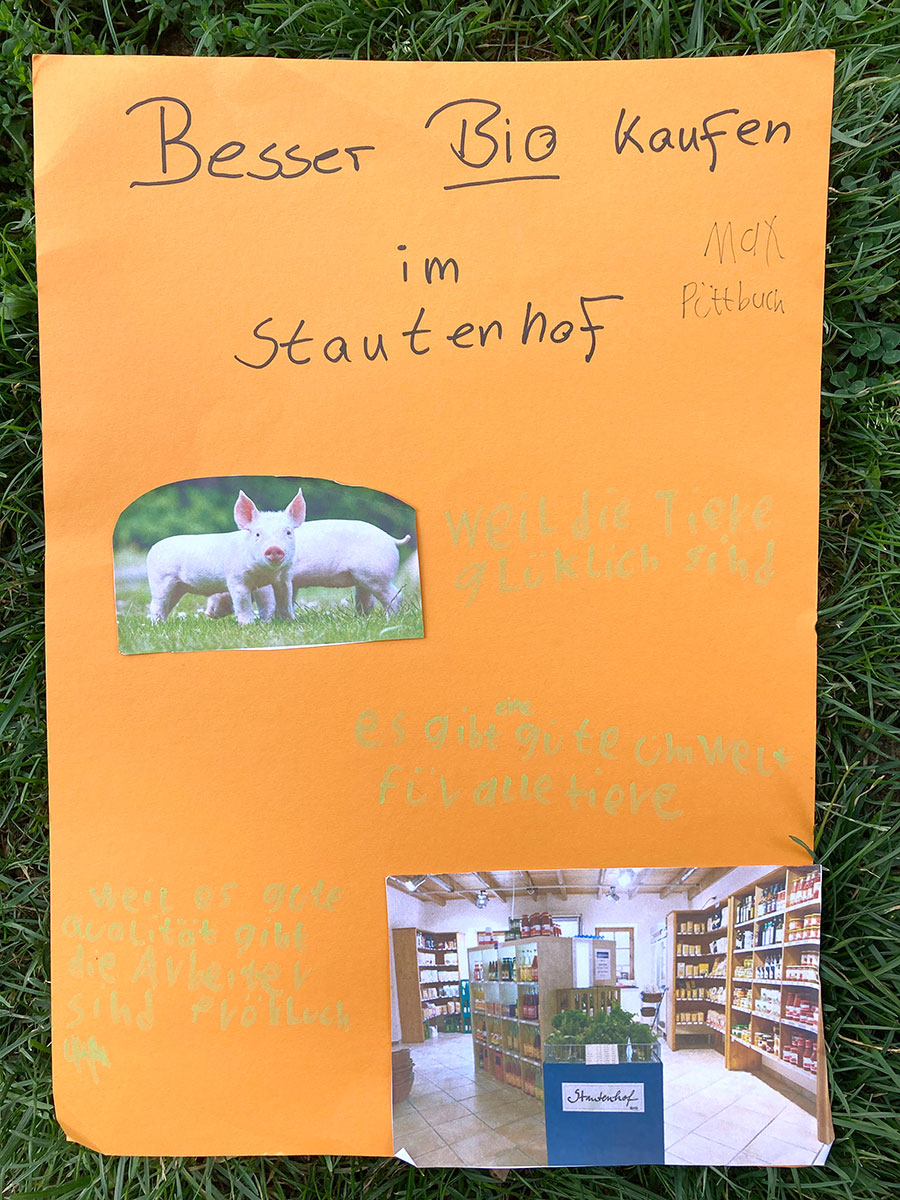 Besser Bio kaufen
im
Stautenhof
Max
Püttbach
weil die Tiere
glüklich sind
es gibt eine güte ümwelt
für alle tiere
weil es gute
Qualität gibt
die Arbeiter
sind frölluch
Stautenhof